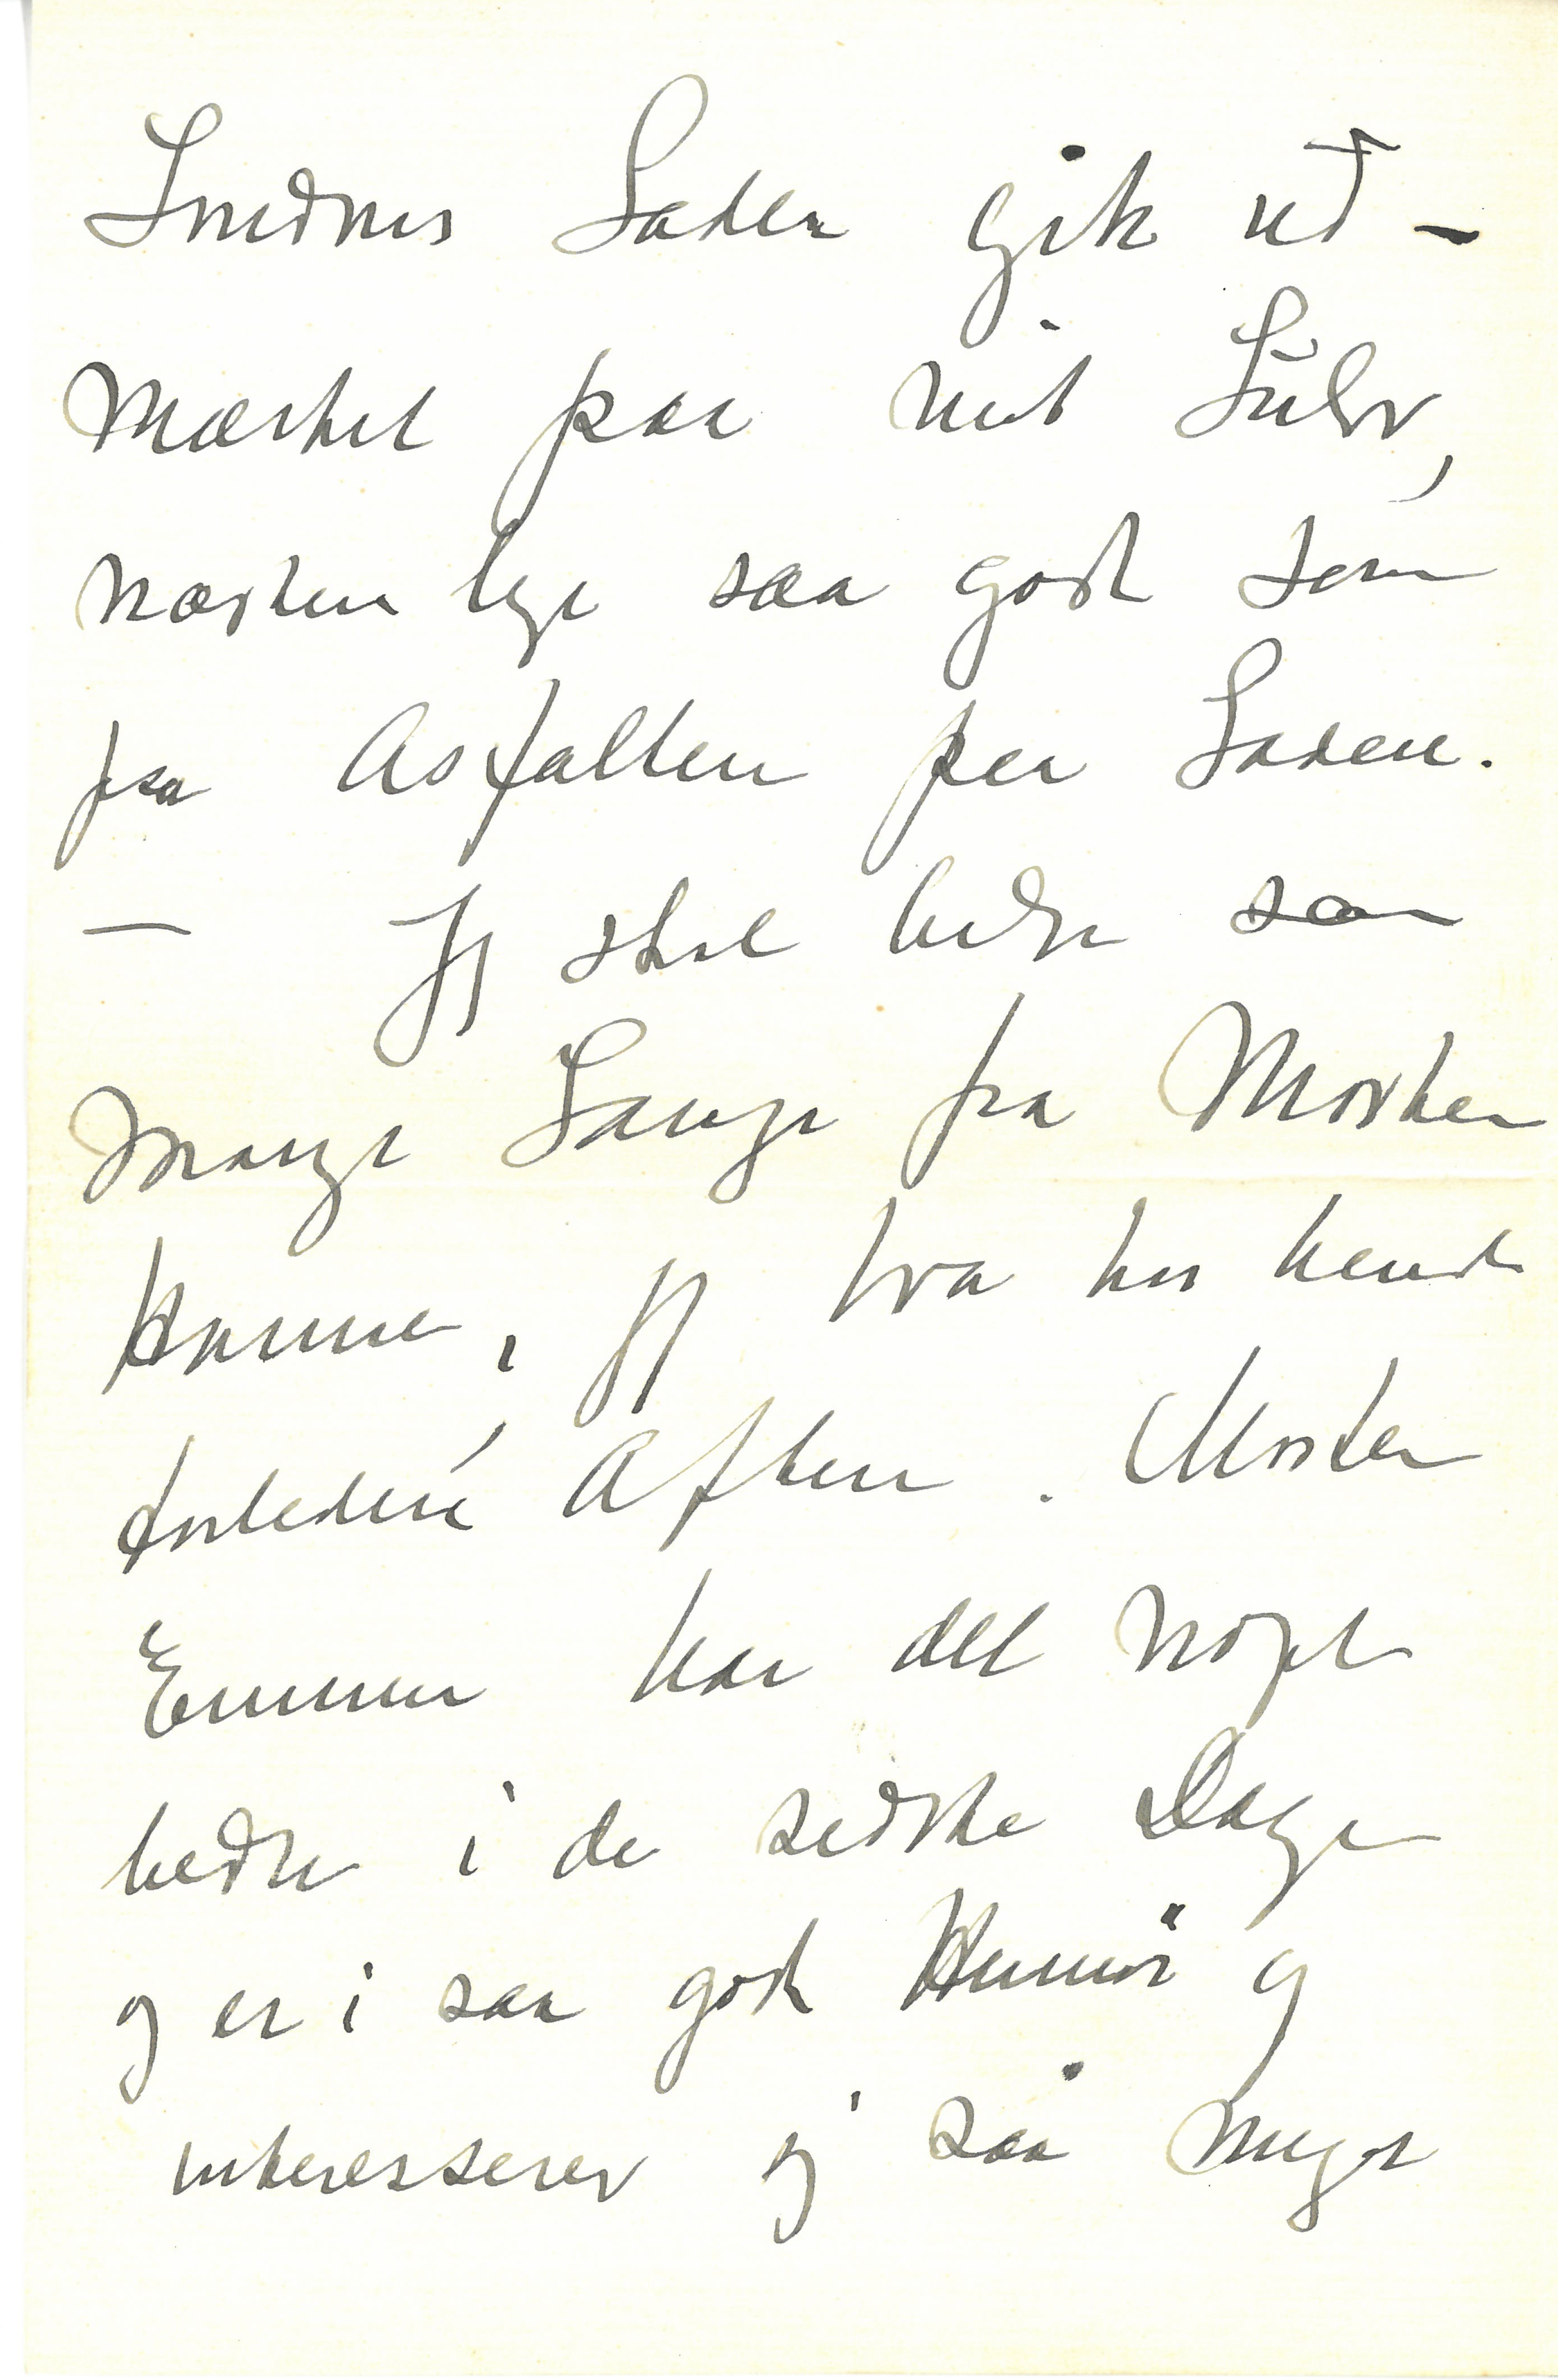 Smedens Saden gik ud-
mærket paa mit Gulv,
næsten lige saa godt som
paa Asfalten paa Gaden.
— Jeg skal hilse saa
mange Gange fra Moster
Hanne, jeg var hos hende
forleden Aften. Moster
Emma har det noget
bedre i de sidste Dage
og er i saa godt Humør og
interesserer sig saa meget